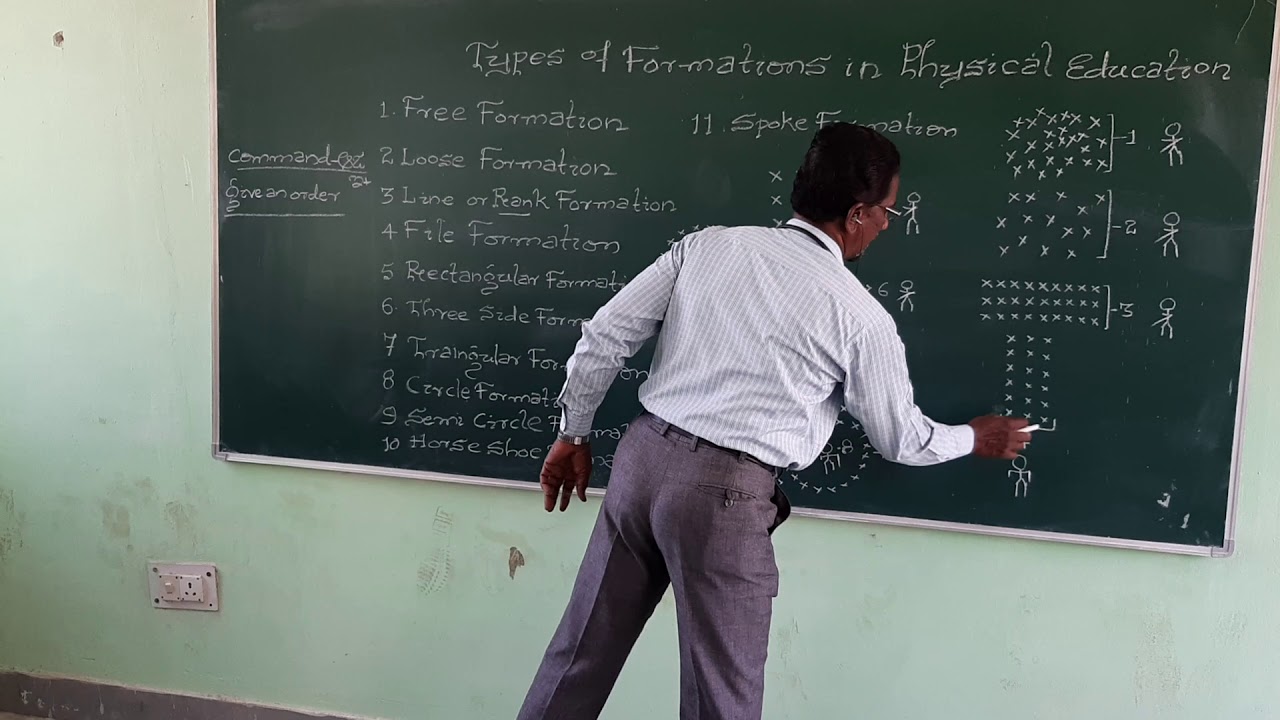 Types of Formations in Physical Education
1. Free Formation
2 Loose Formation
3 Line or Rank Formation
4 File Formation
5 Rectangular Formati
6. Three Side Form
7 Traingular For on
8 Circle Formati
9 Semi Circle F mat
10 Horse Shoe
11. Spoke Formation
command-
Give an order
1
2
3
6
8